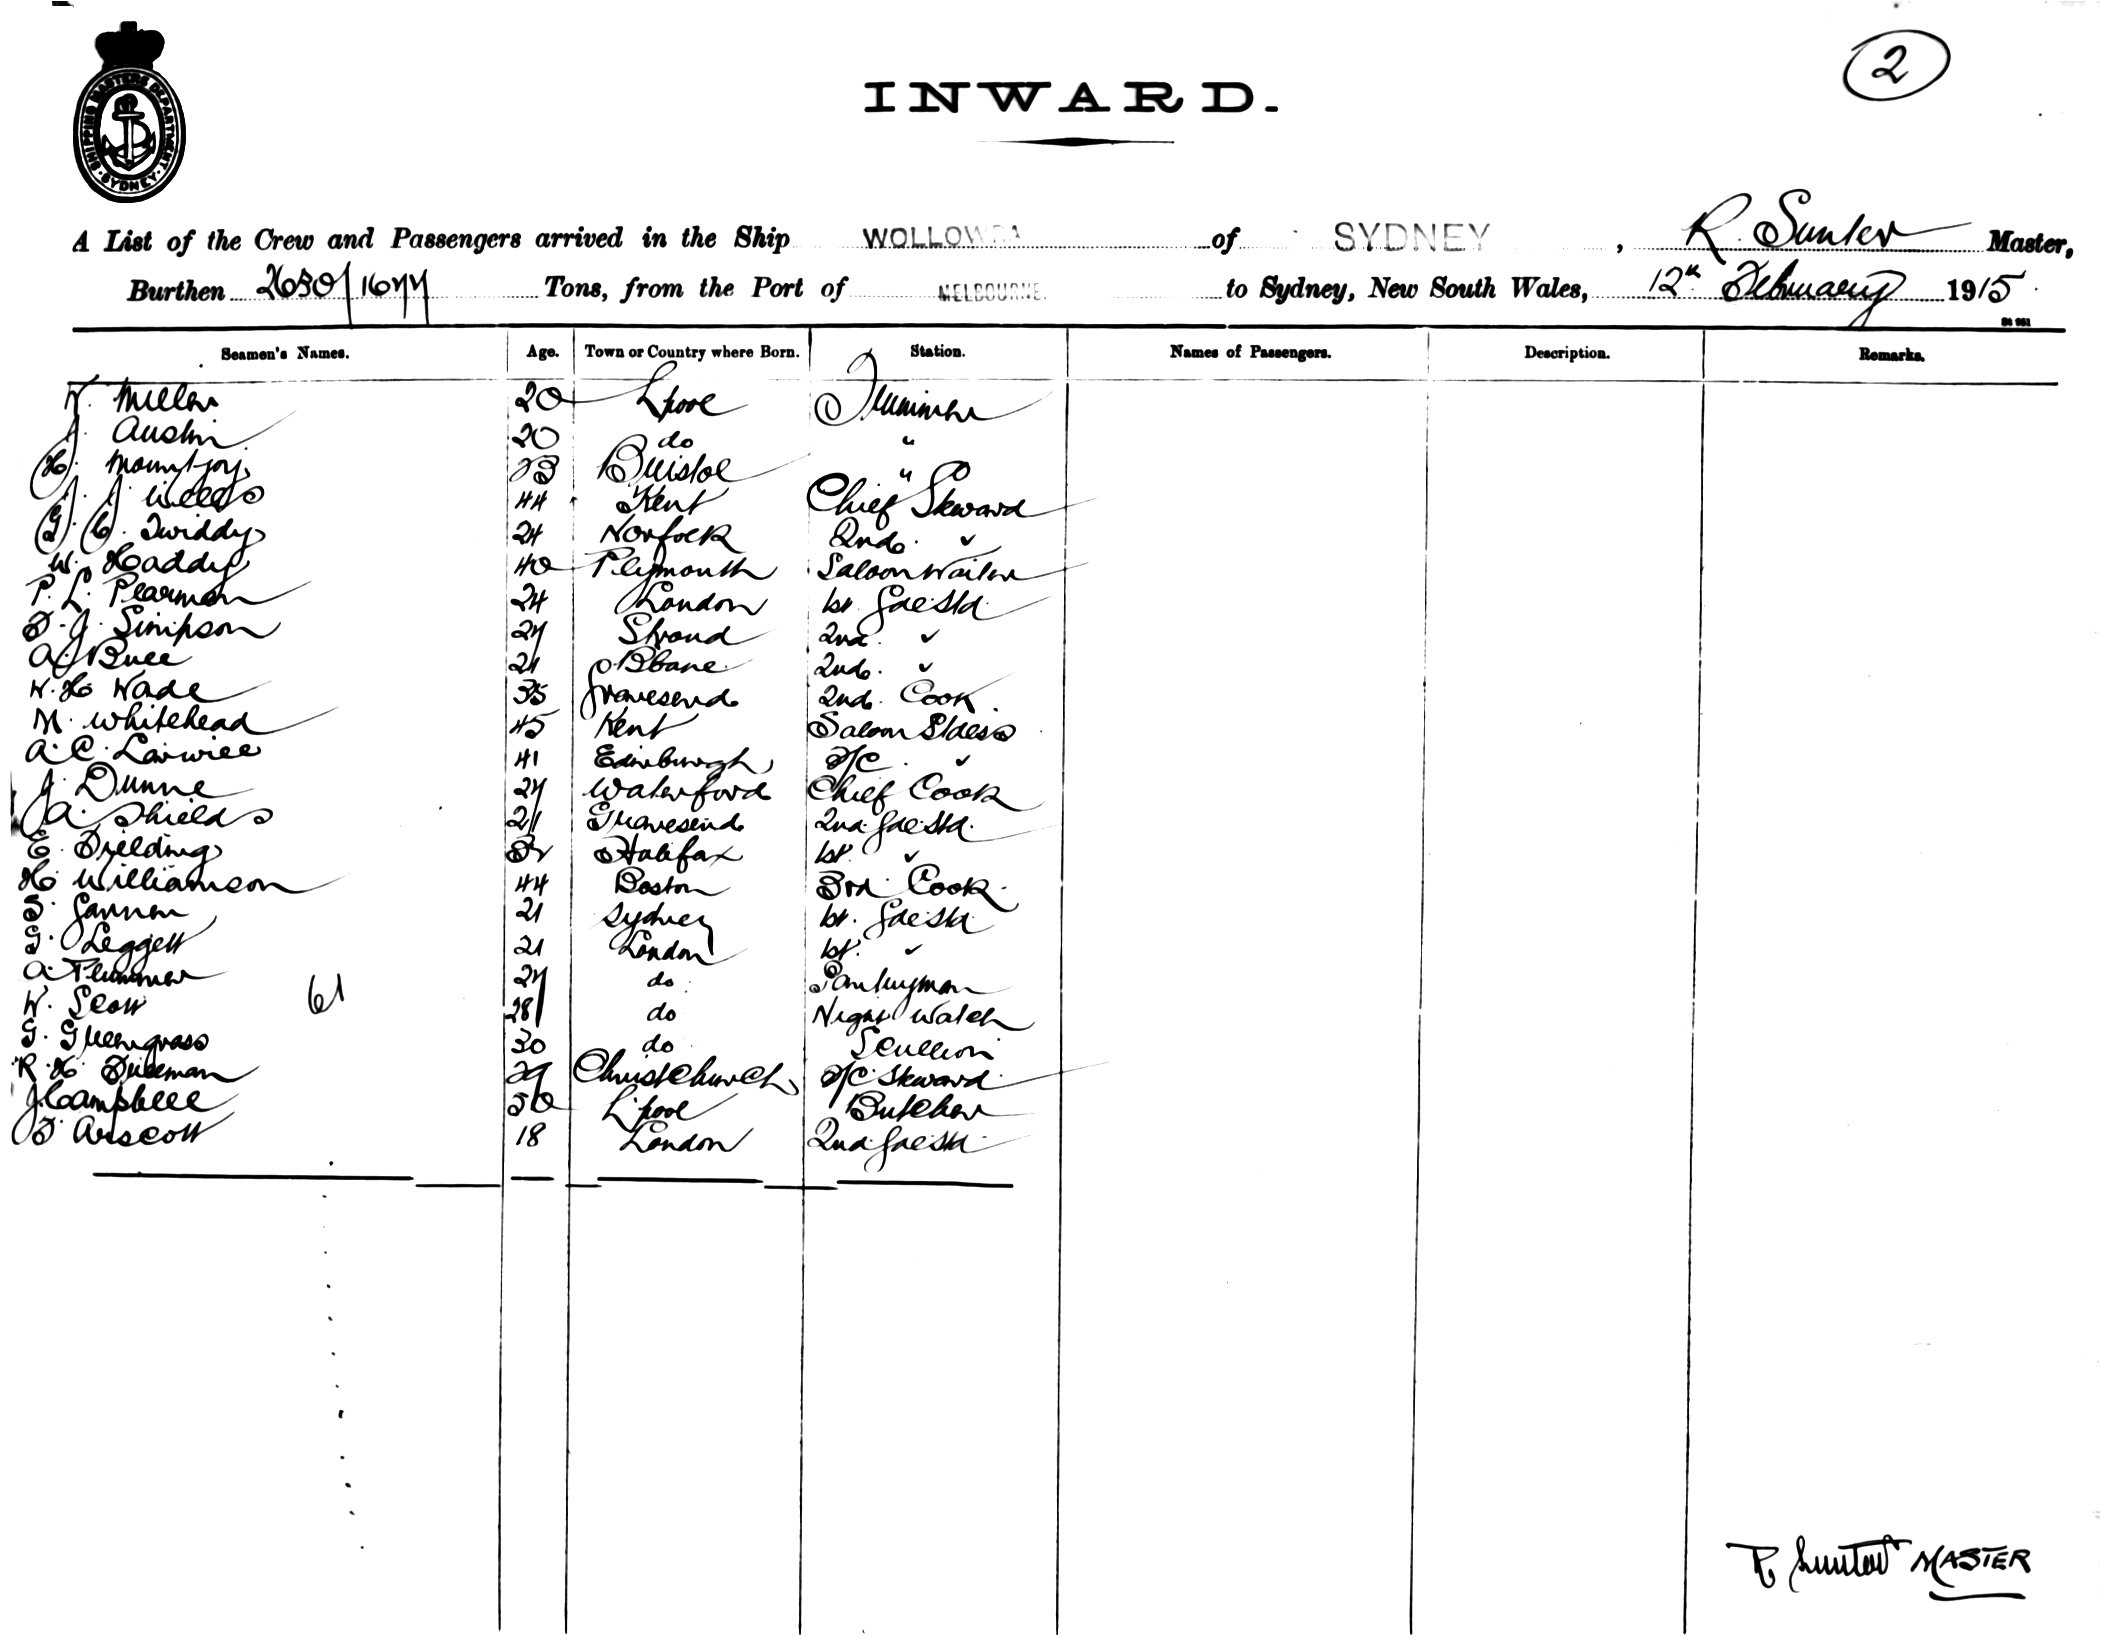 2
SHIPPING MASTERS DEPARTMENT
SYDNEY
INWARD.
A List of the Crew and Passengers arrived in the Ship WOLLOWRA of SYDNEY, R. Sunter Master,
Burthen 2630/1677 Tons, from the Port of MELBOURNE. to Sydney, New South Wales, 12th February 1915
St 981
Seamen's Names. Age. Town or Country where Born. Station. Names of Passengers. Description. Remarks.
W. Miller 20 L'pool Trimmer
J. Austin 20 do "
H. Mountjoy 23 Bristol "
J. J. Wells 44 Kent Chief Steward
G. C. Twiddy 24 Norfolk 2nd. "
W. Haddy 40 Plymouth Saloon Waiter
P. L. Pearman 24 London 1st. Sal Std.
F. J. Simpson 27 Stroud 2nd. "
A. Bull 21 Bbane 2nd. "
W. H. Wade 35 Gravesend 2nd. Cook
M. Whitehead 45 Kent Saloon Stdess
A. C. 41 Edinburgh F/C "
J. Dunne 27 Waterford Chief Cook
A. Shields 21 Gravesend 2nd. Sal Std.
E. Fielding 32 Halifax 1st. "
H. Williamson 44 Boston 3rd. Cook.
S. Gannon 21 Sydney 1st. Sal Std
G. Leggett 21 London 1st. "
A. Plummer 27 do Pantryman
W. Scott 61 28 do Night Watch
G. Greengrass 30 do Scullion
R. H. 29 Christchurch F/C Steward
J. Campbell 50 L'pool Butcher
F. Arscott 18 London 2nd. Sal Std.
R Sunter MASTER